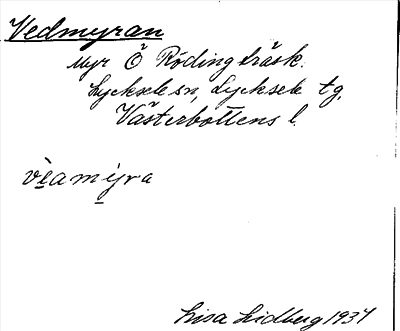 Vedmyran
Myr Ö Rödingträsk.
Lycksele sn, Lycksele tg,
Västerbottens l.
vèamýra
Lisa Lidberg 1937